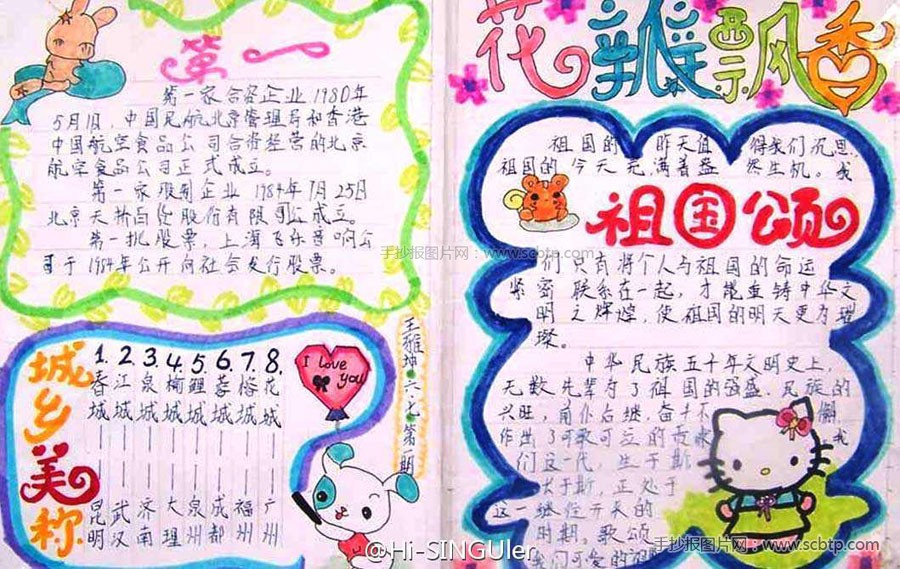 第一
第一家合资企业1980年
5月1日，中国民航北京管理局和香港
中国航空食品公司合资经营的北京
航空食品公司正式成立。
第一家股制企业1984年7月25日
北京天桥百货股份有限公司成立。
第一批股票，上海飞乐音响公
司于1984年公开向社会发行股票。
城乡美称
1.春城——昆明
2.江城——武汉
3.泉城——济南
4.榆城——大理
5.鲤城——泉州
6.蓉城——成都
7.榕城——福州
8.花城——广州
I love
you
王雅坤
花瓣飘香
祖国的昨天值得我们沉思
祖国的今天充满着盎然生机。我
祖国颂
们只有将个人与祖国的命运
紧密联系在一起，才能重铸中华文
明之辉煌，使祖国的明天更为璀
璨。
中华民族五千年文明史上，
无数先辈为了祖国的强盛、民族的
兴旺，前仆后继，奋斗不懈
作出了可歌可泣的贡献。我
们这一代，生于斯
长于斯，正处于
这一继往开来的
时期。歌颂
我们可爱的祖国
手抄报图片网：www.scbtp.com
@Hi-SINGUler
手抄报图片网：www.scbtp.com